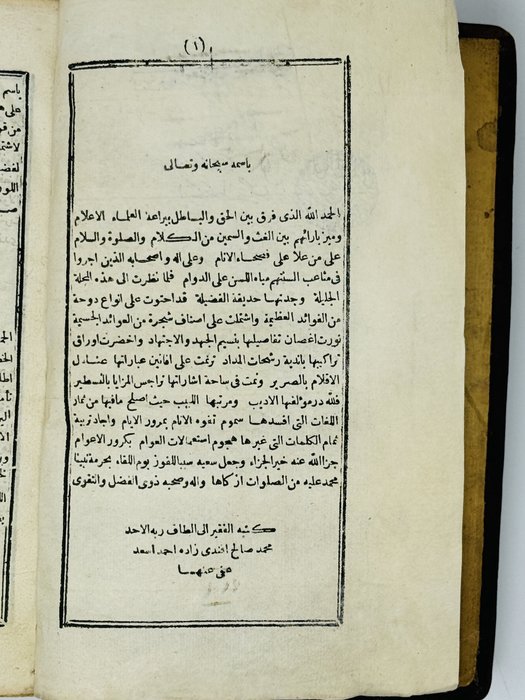 (١)
باسمه سبحانه وتعالى
الحمد لله الذى فرق بين الحق والباطل ببراعة العلماء الاعلام
وميز بارائهم بين الغث والسمين من الكلام والصلوة والسلام
على من علا على فصحاء الانام وعلى اله واصحابه الذين اجروا
فى مثاعب السنتهم مياه اللسن على الدوام فلما نظرت الى هذه المجلة
الجليلة وجدتها حديقة الفضيلة قد احتوت على انواع دوحة
من الفوائد العظيمة واشتملت على اصناف شجرة من العوائد الجسيمة
نورت اغصان تفاصيلها بنسيم الجهد والاجتهاد واخضرت اوراق
تراكيبها باندية رشحات المداد ترنمت على افانين عباراتها عنادل
الاقلام بالصرير ونمت فى ساحة اشاراتها تراجس المزايا بالتسطير
فلله در مؤلفها الاديب ومرتبها اللبيب حيث اصلح مافيها من ثمار
اللغات التى افسدها سموم تفوه الانام بمرور الايام واجاد تربية
تمام الكلمات التى غيرها هجوم استعمالات العوام بكرور الاعوام
جزا الله عنه خير الجزاء وجعل سعيه سببا للفوز يوم اللقاء بحرمة نبينا
محمد عليه من الصلوات ازكاها واله وصحبه ذوى الفضل والتقوى
كتبه الفقير الى الطاف ربه الاحد
محمد صالح افندى زاده احمد اسعد
عفى عنهما